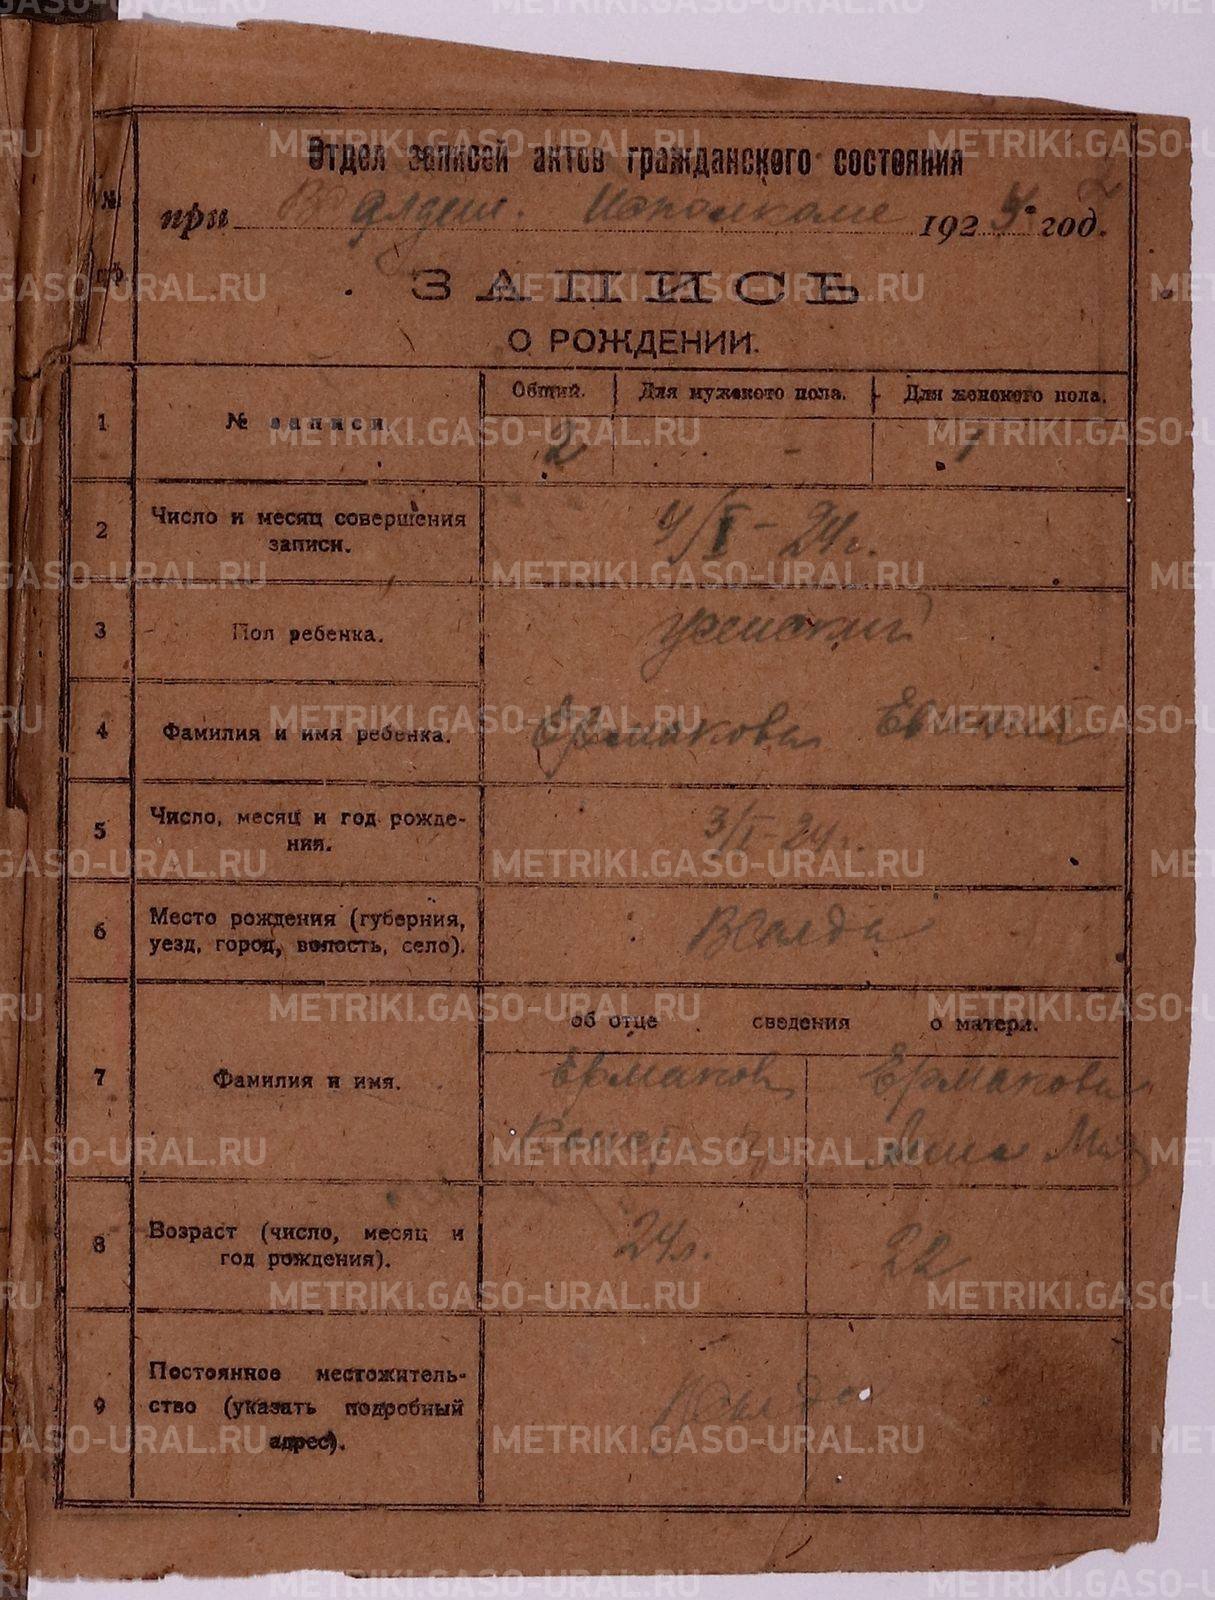 Отдел записей актов гражданского состояния
при Исполкоме 1924 год
ЗАПИСЬ
О РОЖДЕНИИ.
1 № записи. Общий. Для мужского пола. Для женского пола.
2 - 1
2 Число и месяц совершения записи. 4/I - 24 г.
3 Пол ребенка. женский
4 Фамилия и имя ребенка. Ермакова
5 Число, месяц и год рождения. 3/I - 24 г.
6 Место рождения (губерния, уезд, город, волость, село). ВСалда
об отце сведения о матери.
7 Фамилия и имя. Ермаков Ермакова
Анна
8 Возраст (число, месяц и год рождения). 24 л. 22
9 Постоянное местожительство (указать подробный адрес).
METRIKI.GASO-URAL.RU